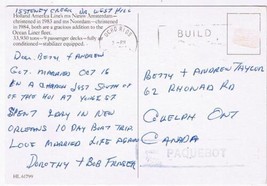 15 STONEY CREEK DR. WEST HILL
Holland America Line's ms Nieuw Amsterdam—
christened in 1983 and ms Noordam—christened
in 1984, both are a gracious addition to the
Ocean Liner fleet.
33,930 tons—9 passenger decks—fully air-
conditioned—stabilizer equipped.
DEAR BETTY + ANDREW
GOT MARRIED OCT 16
ON A BEACH JUST SOUTH OF
OF THE
SPENT 1 DAY IN NEW
ORLEANS 10 DAY BOAT TRIP
LOVE MARRIED LIFE AGAIN
DOROTHY + BOB FRASER
BUILD
BETTY + ANDREW TAYLOR
62 RHONDA RD
GUELPH ONT
CANADA
PAQUEBOT